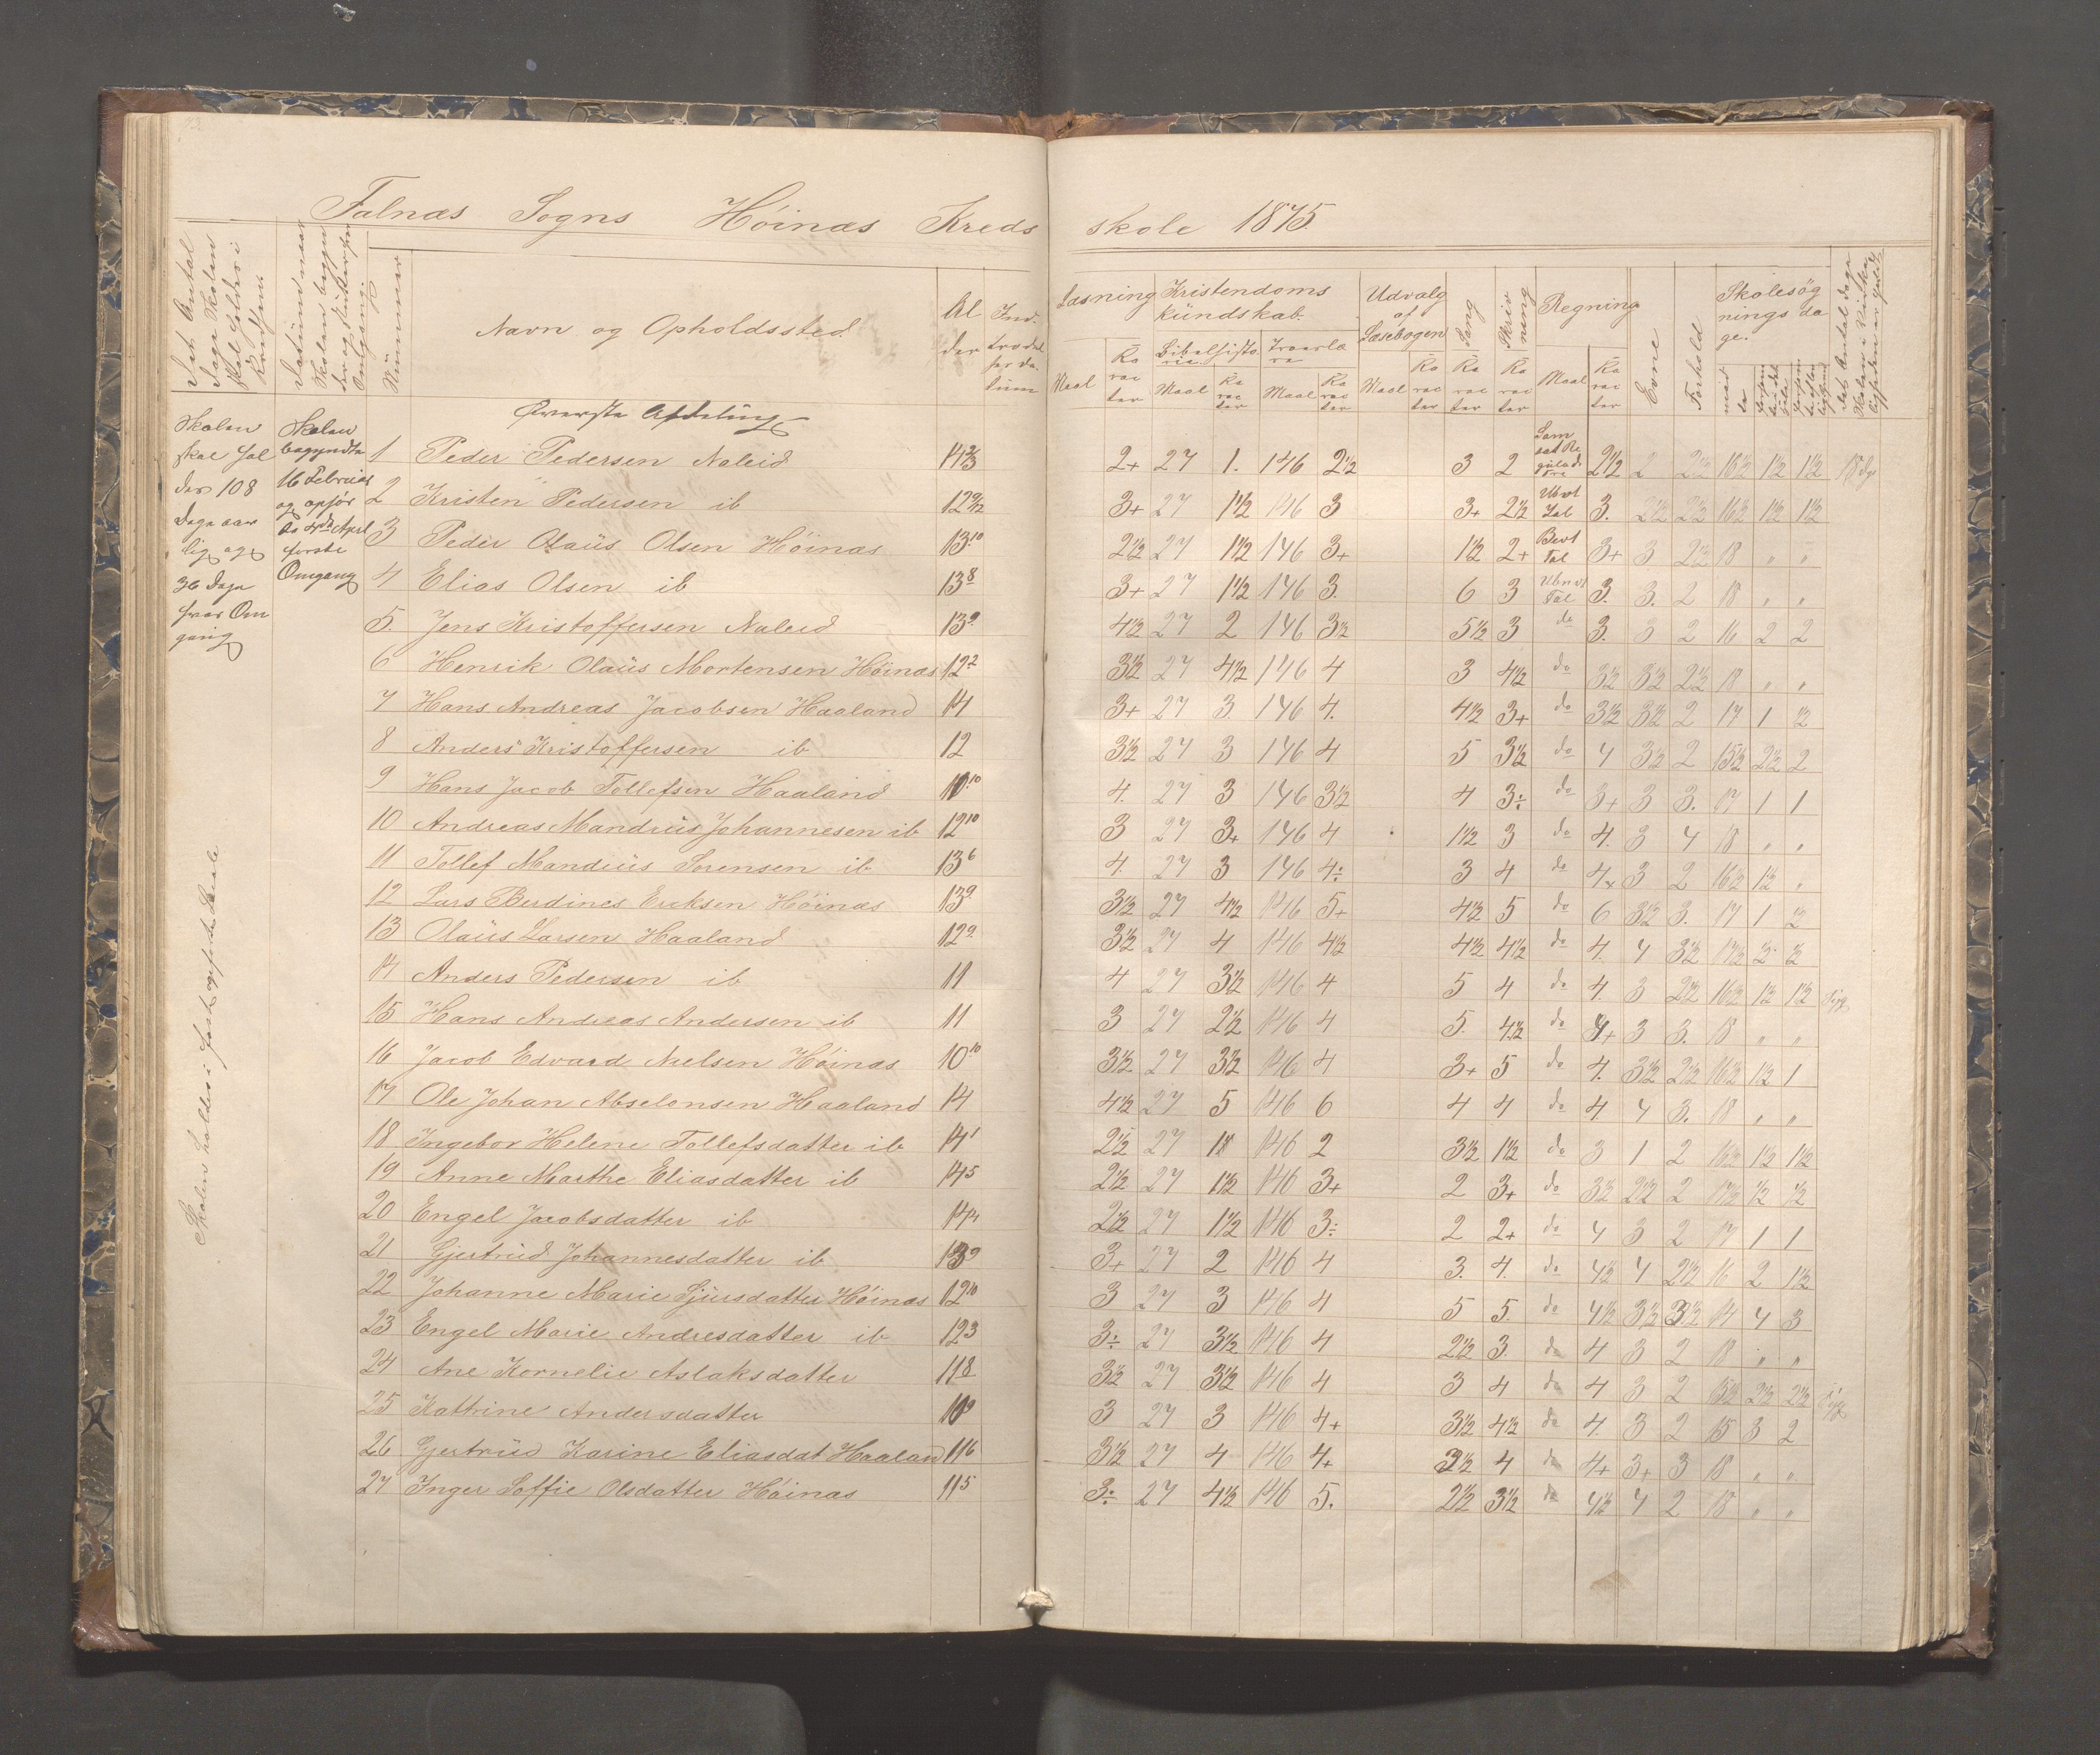 Falnæs Sogns Höinæs Kreds skole 1875.
Det Antal Dage Skolen skal holdes i Kredsen.
Datum naar Skolen begynder og slutter hver Omgang.
Nümmer
Navn og Opholdssted.
Alder
Indtrædelses datum
Læsning
Kristendoms kündskab.
Udvalg af Læsebogen
Sang
Skrivning
Regning
Evne
Forhold
Skolesögnings dage.
Bibelhistorie
Troeslære
Maal Karacter Maal Karacter Maal Karacter Maal Karacter Karacter Karacter Maal Karacter
mødte
Øverste Afdeling
Skolen
skal hol
des 108
Dage aar
lig og
36 Dage
hver Om
gang
Skolen
begyndte
16 Februar
og ophör
den 4de April
förste
Omgang
1 Peder Pedersen Naleid 14 2/3 2+ 27 1. 146 2½ 3 2 2½ 2 2½ 16½ 1½ 1½
2 Kristen Pedersen ib 12 9/12 3+ 27 1½ 146 3 3+ 2½ Ubvt Tal 3. 2½ 2½ 16½ 1½ 1½
3 Peder Olaüs Olsen Höinæs 13 10 2½ 27 1½ 146 3+ 1½ 2+ Bevt Tal 3+ 3 2½ 18 " "
4 Elias Olsen ib 13 8 3+ 27 1½ 146 3. 6 3 Ubnvt Tal 3. 3. 2 18 " "
5. Jens Kristoffersen Naleid 13 9 4½ 27 2 146 3½ 5½ 3 do 3. 3 2 16 2 2
6 Henrik Olaüs Mortensen Höinæs 12 2 3½ 27 4½ 146 4 3 4½ do 3½ 3½ 2½ 18 " "
7 Hans Andreas Jacobsen Haaland 14 3+ 27 3. 146 4. 4½ 3+ do 3½ 3½ 2 17 1 ½
8 Anders Kristoffersen ib 12 3½ 27 3 146 4 5 3½ do 4 3½ 2 15½ 2½ 2
9 Hans Jacob Tollefsen Haaland 10 10 4. 27 3 146 3½ 4 3÷ do 3+ 3 3. 17 1 1
10 Andreas Mandrüs Johannesen ib 12 10 3 27 3+ 146 4 1½ 3 do 4. 3 4 18 " "
11 Tollef Mandiüs Sorensen ib 13 6 4. 27 3 146 4÷ 3 4 do 4+ 3 2 16½ 1½ "
12 Lars Berdines Ericksen Höinæs 13 9 3½ 27 4½ 146 5+ 4½ 5 do 6 3½ 3. 17 1 ½
13 Olaüs Larsen Haaland 12 9 3½ 27 4 146 4½ 4½ 4½ do 4. 4 3½ 17½ ½ ½
14 Anders Pedersen ib 11 4 27 3½ 146 4 5 4 do 4. 3 2½ 16½ 1½ 1½
15 Hans Andreas Andersen ib 11 3 27 2½ 146 4 5. 4½ do 4+ 3 3. 18 " "
16 Jacob Edvard Nielsen Höinæs 10 10 3½ 27 3½ 146 4 3+ 5 do 4. 3½ 2½ 16½ 1½ 1
17 Ole Johan Abselonsen Haaland 14 4½ 27 5 146 6 4 4 do 4 4 3. 18 " "
18 Ingebor Helene Tollefsdatter ib 14 1 2½ 27 1 146 2 3½ 1½ do 3 1 2 16½ 1½ 1½
19 Anne Marthe Eliasdatter ib 14 5 2½ 27 1½ 146 3+ 2 3+ do 3½ 2½ 2 17½ ½ ½
20 Engel Jacobsdatter ib 14 4 2½ 27 1½ 146 3÷ 2 2+ do 4 3 2 17 1 1
21 Gjertrüd Johannesdatter ib 13 9 3+ 27 2 146 4 3. 4. do 4½ 4 2½ 16 2 1½
22 Johanne Marie Sjürsdatter Höinæs 12 10 3 27 3 146 4 5 5. do 4½ 3½ 3½ 14 4 3
23 Engel Marie Andresdatter ib 12 3 3÷ 27 3½ 146 4 2½ 3. do 4 3 2 18 " "
24 Ane Kornelie Aslaksdatter 11 8 3½ 27 3½ 146 4 3 4 do 4 3 2 15½ 2½ 2½
25 Kattrine Andersdatter 10 9 3 27 3 146 4+ 3½ 4½ do 4. 3 2 15 3 2
26 Gjertrüd Karine Eliasdat Haaland 11 6 3½ 27 4 146 4+ 3½ 4 do 4+ 3+ 3 18 " "
27 Inger Soffie Olsdatter Höinæs 11 5 3÷ 27 4½ 146 5. 2½ 3½ do 4½ 4 2 18 " "
Skolen holdes i fast